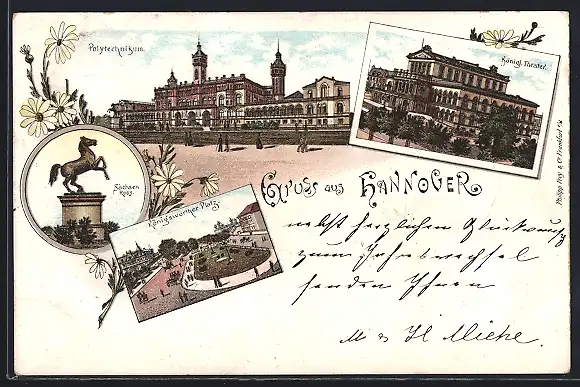 Polytechnikum.
Königl. Theater.
Sachsen
Ross.
Königsworther Platz.
Gruss aus HANNOVER
Philipp Frey & Co Frankfurt a/M
nebst herzlichen Glückwunsch
zum Jahreswechsel
senden Ihnen
M & H Mieke.